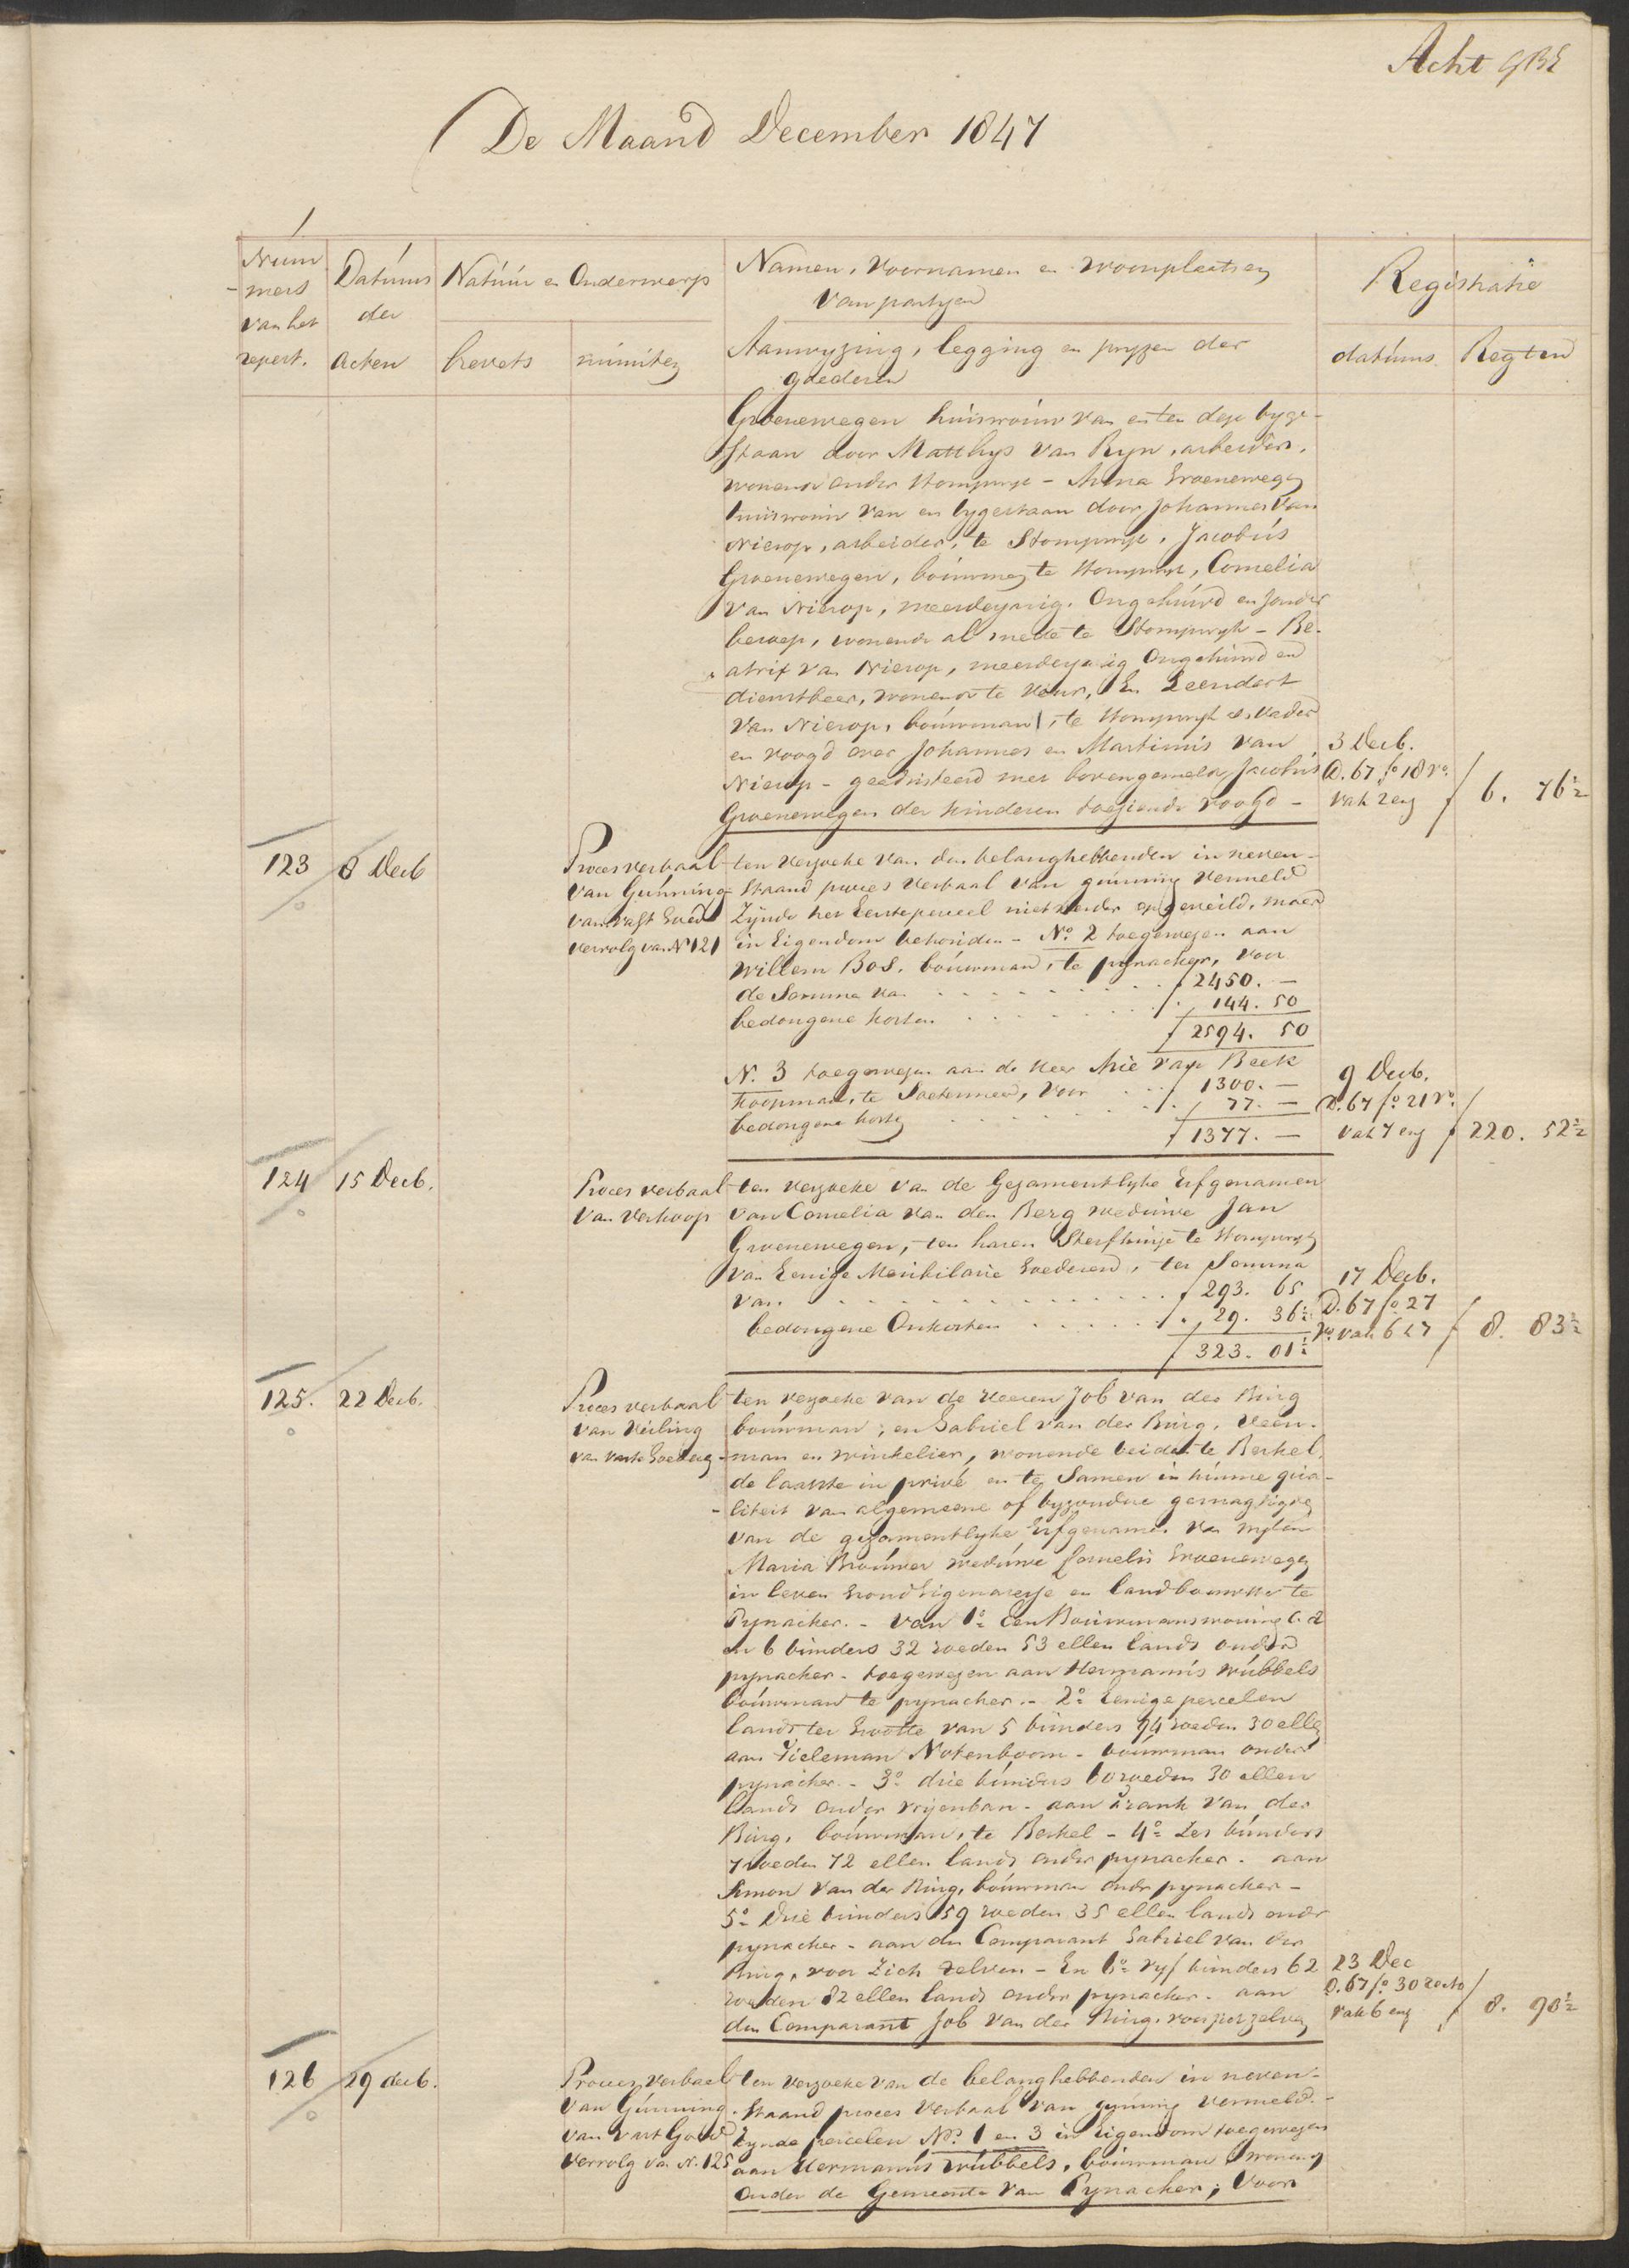 Acht
De Maand December 1847
Num
mers
van het
repert.
Datums
der
Acten
Natuur en Onderwerp
brevets
minuten
Namen, Voornamen en Woonplaatsen
van partyen
Aanwyzing, legging en pryzen der
goederen
Registratie
datums
Regten
Groenewegen huisvrouw van en ten deze byge-
staan door Matthys van Ryn, arbeider,
wonende onder Stompwyk - Anna Groenewegen
huisvrouw van en bygestaan door Johannes van
Nierop, arbeider, te Stompwyk, Jacobus
Groenewegen, bouwman te Stompwyk, Cornelia
van Nierop, meerderjarig, Ongehuwd en zonder
beroep, wonende al mede te Stompwyk - Be-
atrix van Nierop, meerderjarig Ongehuwd en
dienstbaar, wonende te Veur, En Leendert
van Nierop, bouwman, te Stompwyk als vader
en voogd over Johannes en Martinus van
Nierop - geadsisteerd met bovengemelde Jacobus
Groenewegen der kinderen toeziende voogd -
3 Decb.
D. 67 fo 18 vo.
vak 2 en
f 6. 76½
123
8 Decb
Proces verbaal
van Gunning
van vast Goed
vervolg van No 121
ten verzoeke van den belanghebbenden in neven-
staand proces verbaal van gunning vermeld
Zijnde het Eerste perceel niet verder opgeveild, maar
in Eigendom behouden - No. 2 toegewezen aan
Willem Bos, bouwman, te pynacker, voor
de Somma van . . . . . . . f 2450. -
bedongene kosten . . . . . . . 144. 50
f 2594. 50
N. 3 toegewezen aan de Heer Arie van Beek
koopman, te Soetermeer, voor . . f 1300. -
bedongene kosten . . . . . . . 77. -
f 1377. -
9 Decb.
D. 67 fo. 21 vo.
vak 7 en
f 220. 52½
124
15 Decb.
Proces verbaal
van Verkoop
ten verzoeke van de Gezamentlyke Erfgenamen
van Cornelia van den Berg weduwe Jan
Groenewegen, ten haren Sterfhuize te Stompwyk
van Eenige Meubilaire Goederen, ter Somma
van . . . . . . . f 293. 65
bedongene Onkosten . . . . . 29. 36½
f 323. 01½
17 Decb.
D. 67 fo. 27
vo. vak 6 & 7
f 8. 83½
125.
22 Decb.
Proces verbaal
van Veiling
van vaste Goederen
ten verzoeke van de Heeren Job van der Burg
bouwman, en Gabriel van der Burg, Veen-
man en winkelier, wonende beiden te Berkel,
de laatste in privé en te Samen in hunne qua-
liteit van algemeene of byzondere gemagtigde
van de gezamentlyke Erfgenamen van wylen
Maria Brouwer weduwe Cornelis Groenewegen
in leven Grond Eigenaresse en landbouwster te
Pynacker. - van 1o. Een Bouwmanswoning c. a
en 6 bunders 32 roeden 53 ellen lands onder
pynacker - toegewezen aan Hermanus Wubbels
bouwman te pynacker. - 2o. Eenige percelen
lands ter Grootte van 5 bunders 94 roeden 30 ellen
aan Tieleman Notenboom - bouwman onder
pynacker. - 3o. drie bunders 60 roeden 30 ellen
lands onder Vrijenban - aan Frank van der
Burg, bouwman, te Berkel - 4o. Zes bunders
7 roeden 72 ellen lands onder pynacker. aan
Simon van der Burg, bouwman onder pynacker -
5o. Drie bunders 59 roeden 35 ellen lands onder
pynacker - aan den Comparant Gabriel van der
Burg, voor Zich zelven - En 6o. Vyf bunders 62
roeden 82 ellen lands onder pynacker. aan
den Comparant Job van der Burg, voor zelven
23 Dec
D. 67 fo. 30 recto
vak 6 en
f 8. 98½
126
29 decb.
Proces verbaal
van Gunning
van vast Goed
vervolg van N. 125
ten verzoeke van de belanghebbenden in neven-
staand proces verbaal van gunning vermeld. -
Zynde percelen No. 1 en 3 in Eigendom toegewezen
aan Hermanus Wubbels, bouwman wonend
onder de Gemeente van Pynacker, voor